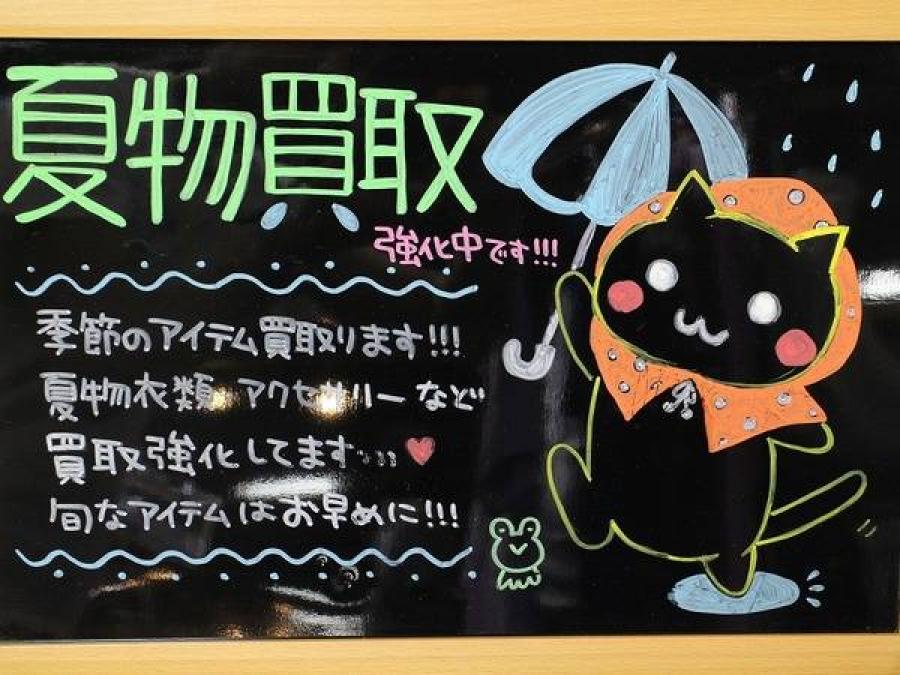 夏物買取
強化中です!!!
季節のアイテム買取ります!!!
夏物衣類 アクセサリーなど
買取強化してます...♥
旬なアイテムはお早めに!!!